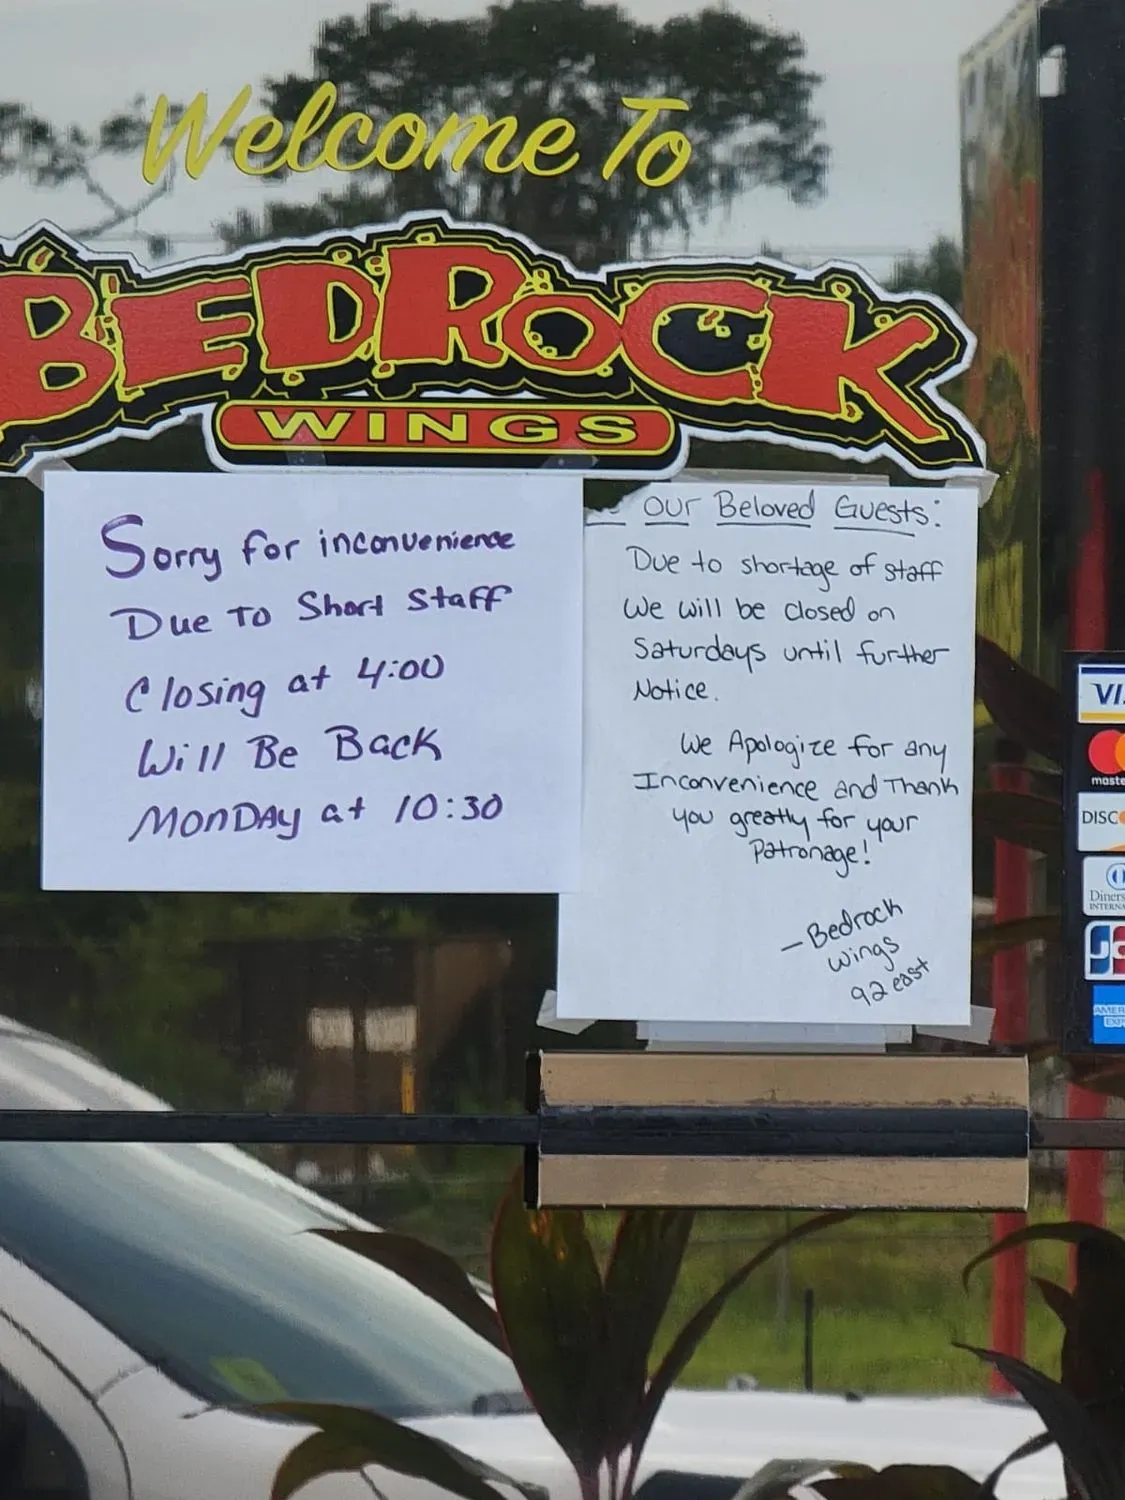 Welcome To
BEDROCK
WINGS
Sorry for inconvenience
Due To Short Staff
Closing at 4:00
Will Be Back
MONDAY at 10:30
our Beloved Guests:
Due to shortage of staff
We will be closed on
Saturdays until further
Notice.
We Apologize for any
Inconvenience and Thank
you greatly for your
Patronage!
-Bedrock
Wings
92 east
VI
maste
DISC
Diners
INTERNA
JC
AMER
EXP